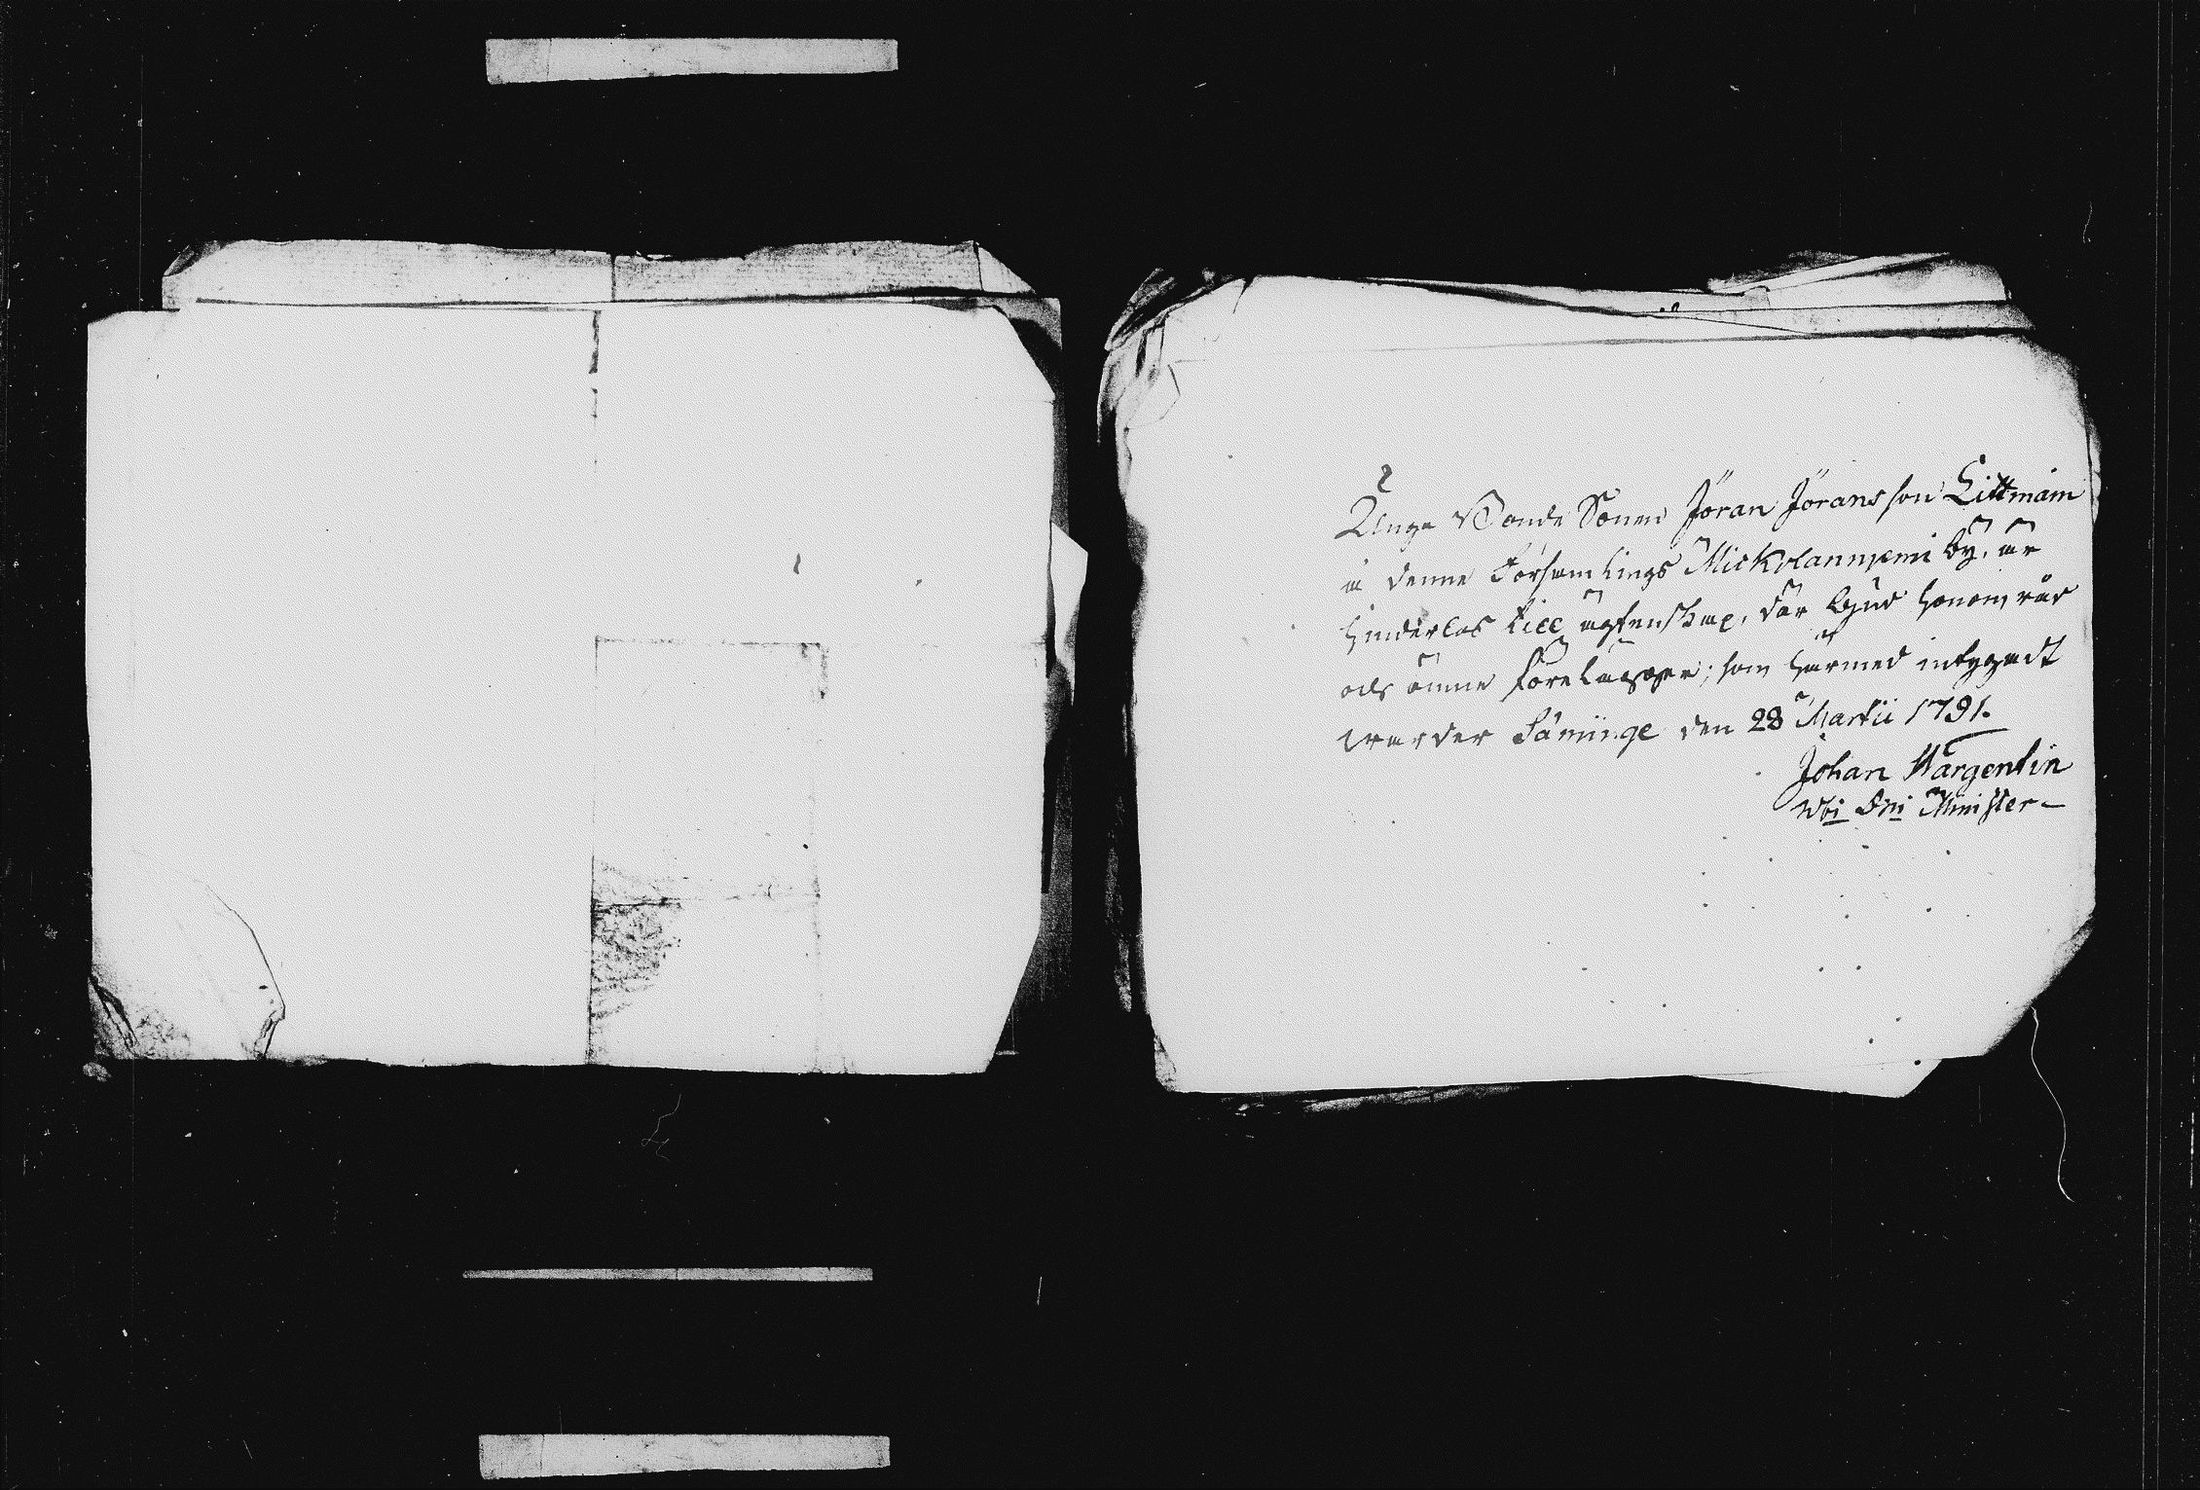 Unge Bonde Sonen Jöran Jöransson Littmain
i denne Församlings Mickolanniemi by, är
hinderlös till ägtenskap, där Gud honom råd
och ämne förelägger; som härmed intygadt
warder Säminge den 28 Martii 1791.
Johan Wargentin
Vbi Dni Minister